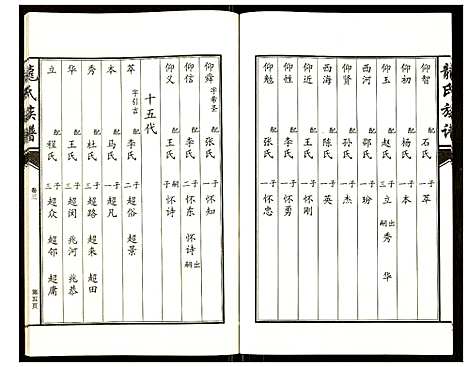 龍氏族譜
仰智 配 石氏 一子 萃
仰初 配 杨氏 一子 本
仰玉 配 赵氏 三子 立 秀 华 出嗣
西河 配 邵氏 一子 玢
仰贤 配 孙氏 一子 杰
西海 配 陈氏 一子 英
仰近 配 王氏 一子 怀刚
仰姓 配 李氏 一子 怀勇
仰勉 配 张氏 一子 怀忠
仰舜 字希圣 配 张氏 一子 怀知
仰信 配 李氏 二子 怀东 怀诗 出嗣
仰义 配 王氏 嗣子 怀诗
十五代
萃 字引言 配 李氏 二子 超俗 超景
本 配 马氏 一子 超凡
秀 配 杜氏 三子 超路 超来 超田
华 配 王氏 三子 超闵 兆河 兆恭
立 配 程氏 三子 超众 超邻 超庸
龍氏族譜
卷三
第五页